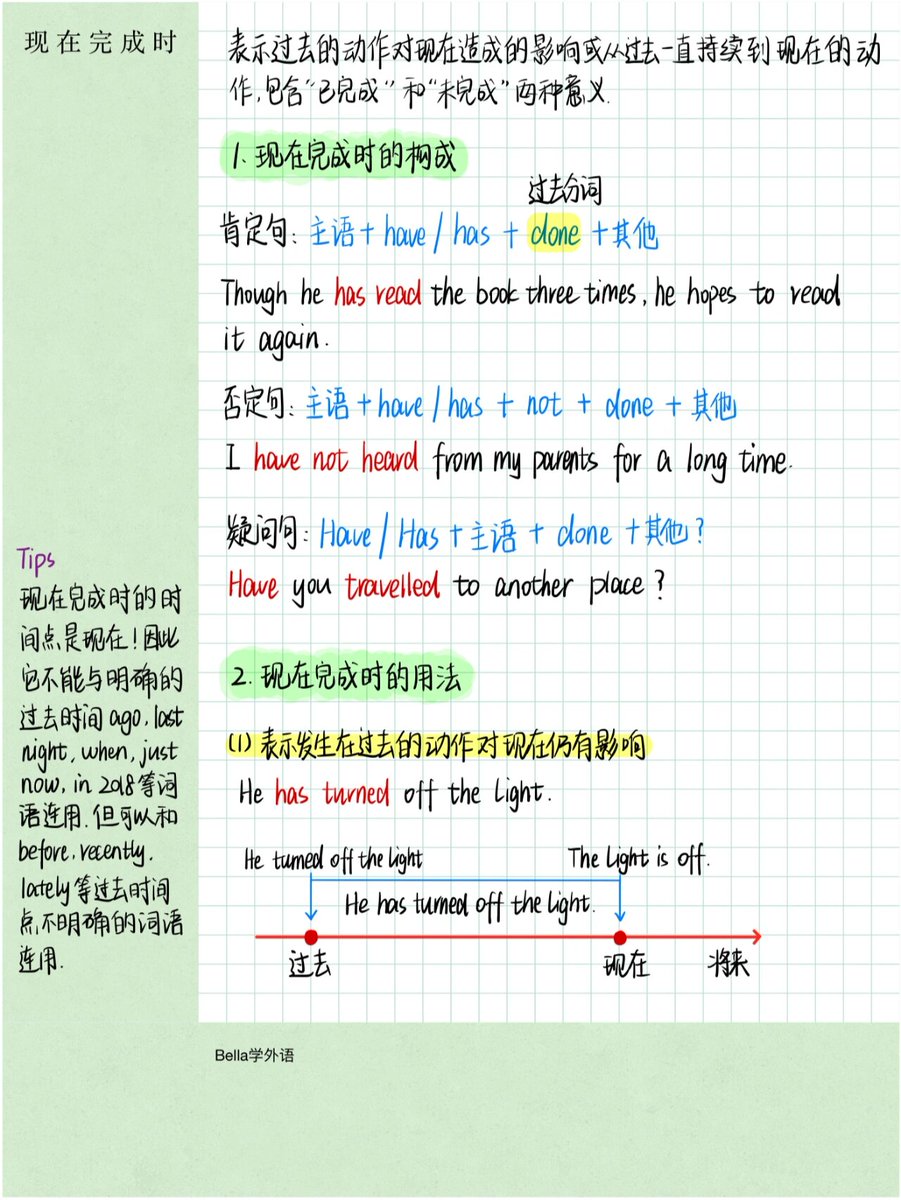 现在完成时
表示过去的动作对现在造成的影响或从过去一直持续到现在的动
作,包含“已完成”和“未完成”两种意义.
1. 现在完成时的构成
过去分词
肯定句: 主语 + have / has + done + 其他
Though he has read the book three times, he hopes to read
it again.
否定句: 主语 + have / has + not + done + 其他
I have not heard from my parents for a long time.
疑问句: Have / Has + 主语 + done + 其他?
Have you travelled to another place?
Tips
现在完成时的时
间点是现在!因此
它不能与明确的
过去时间 ago, last
night, when, just
now, in 2018等词
语连用.但可以和
before, recently,
lately等过去时间
点不明确的词语
连用.
2. 现在完成时的用法
(1) 表示发生在过去的动作对现在仍有影响
He has turned off the light.
He turned off the light
The light is off.
He has turned off the light.
过去
现在
将来
Bella学外语